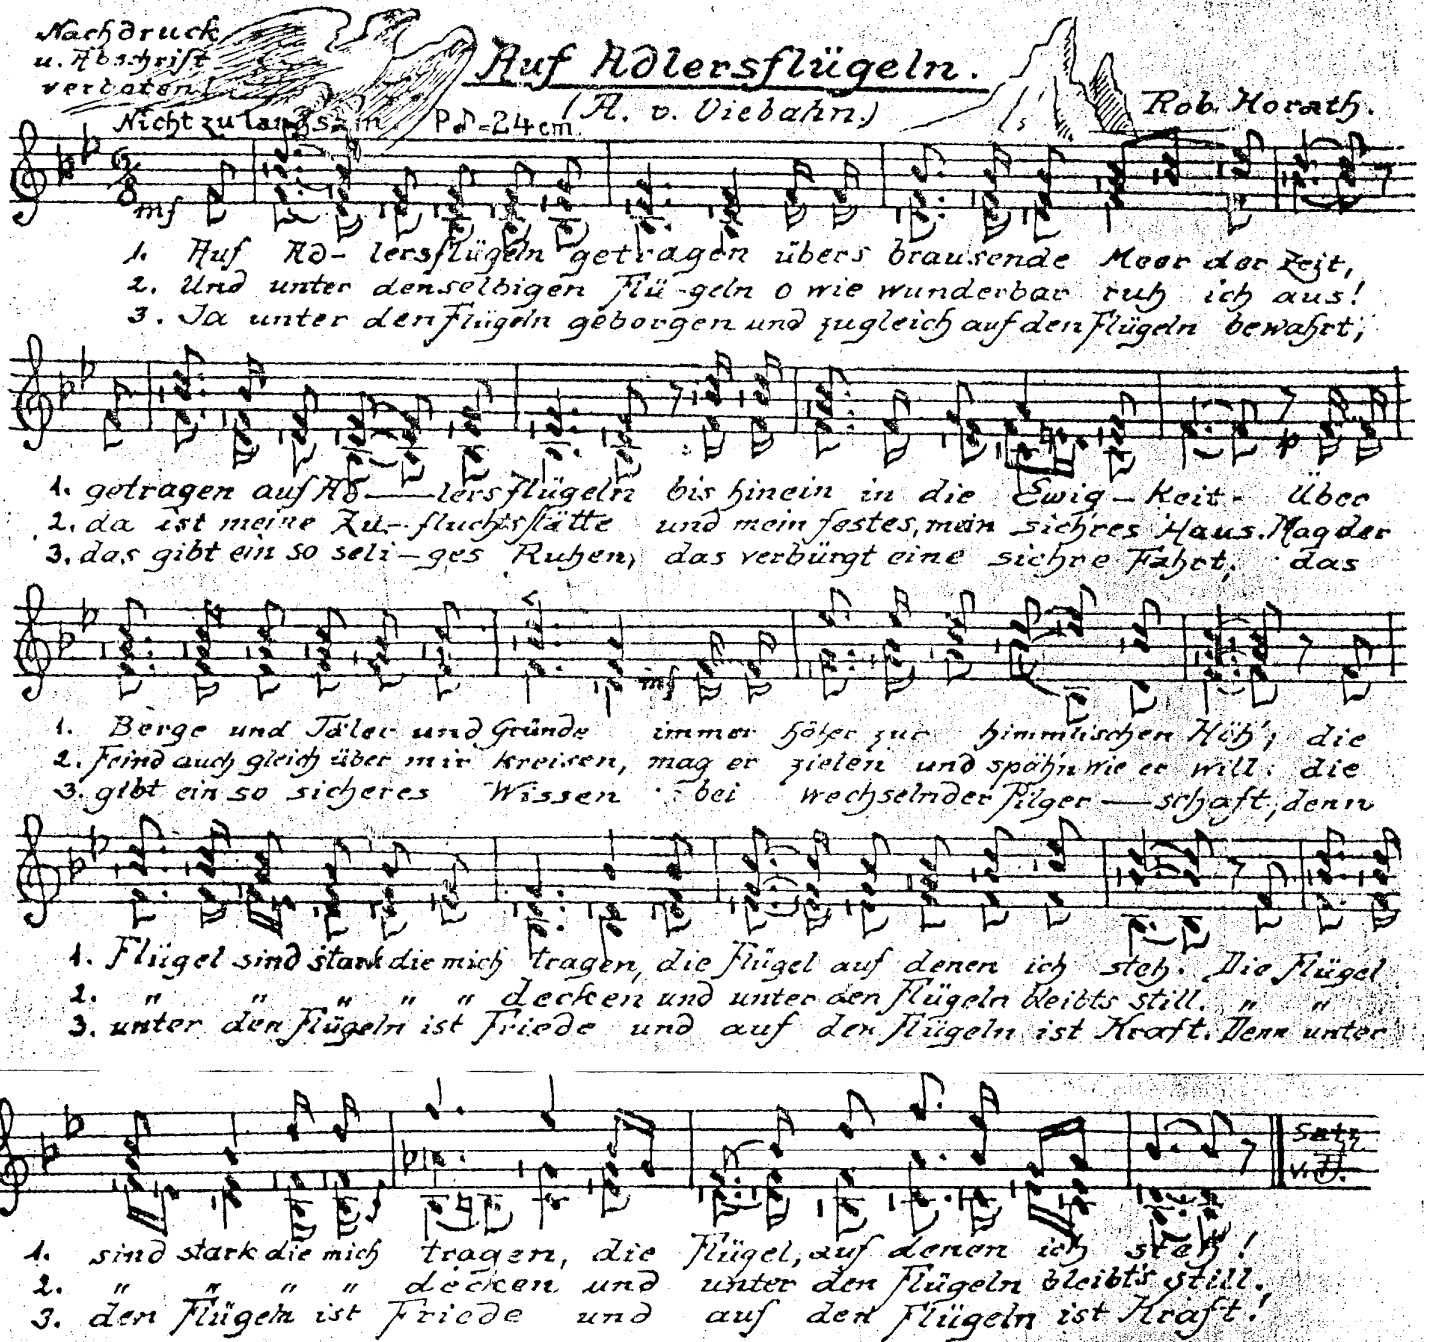 Nachdruck
u. Abschrift
verboten!
Auf Adlersflügeln.
(A. v. Viebahn.)
Rob. Horath.
Nicht zu langsam. P♪=24cm.
6/8
mf
1. Auf Ad- lersflügeln getragen übers brausende Meer der Zeit,
2. Und unter denselbigen Flü-geln o wie wunderbar ruh ich aus!
3. Ja unter den Flügeln geborgen und zugleich auf den Flügeln bewahrt,
p
1. getragen auf Ad——lersflügeln bis hinein in die Ewig-keit- Über
2. da ist meine Zu-fluchtsstätte und mein festes, mein sich'res Haus. Mag der
3. das gibt ein so seli-ges Ruhen, das verbürgt eine sichre Fahrt, das
mf
1. Berge und Täler und Gründe immer höher zur himmlischen Höh', die
2. Feind auch gleich über mir kreisen, mag er zielen und spähn wie er will: die
3. gibt ein so sicheres Wissen bei wechselnder Pilger—schaft, denn
1. Flügel sind stark die mich tragen, die Flügel auf denen ich steh. Die Flügel
2. " " " " " decken und unter den Flügeln bleibts still. " "
3. unter den Flügeln ist Friede und auf den Flügeln ist Kraft. Denn unter
Satz
v. J.
1. sind stark die mich tragen, die Flügel, auf denen ich steh!
2. " " " " decken und unter den Flügeln bleibt's still.
3. den Flügeln ist Friede und auf den Flügeln ist Kraft!